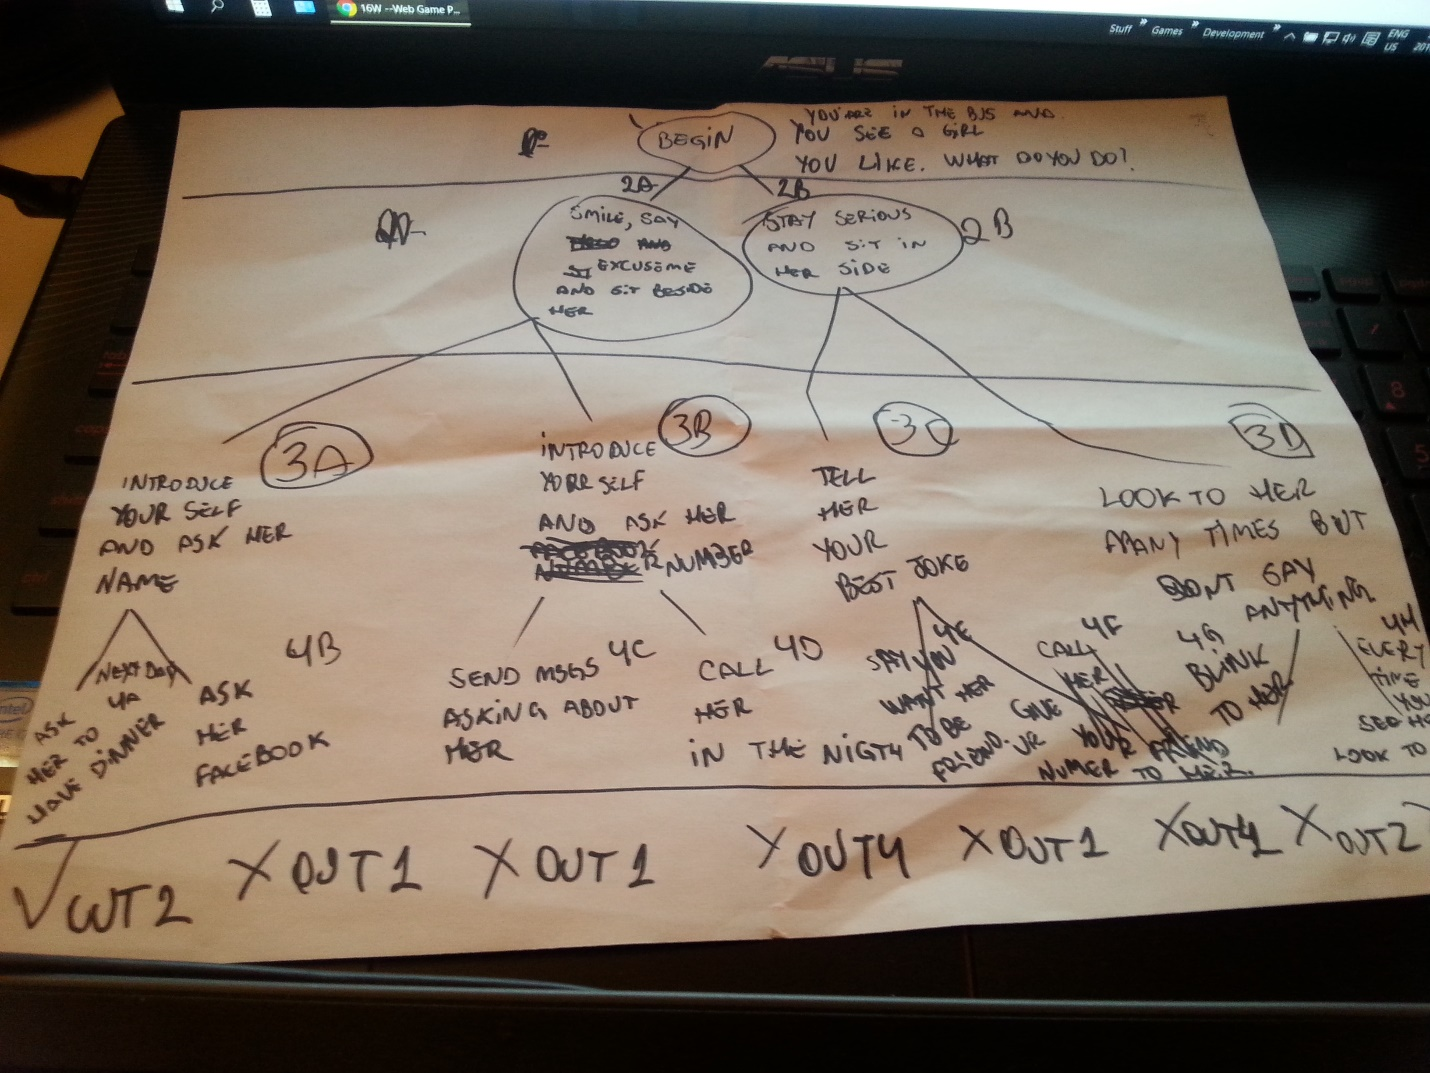 16W --Web Game P...
Stuff » Games » Development »
ENG
US
ASUS
BEGIN
YOU ARE IN THE BUS AND
YOU SEE A GIRL
YOU LIKE. WHAT DO YOU DO?
2A
2B
SMILE, SAY
EXCUSEME
AND SIT BESIDE
HER
STAY SERIOUS
AND SIT IN
HER SIDE
2B
3A
INTRODUCE
YOUR SELF
AND ASK HER
NAME
3B
INTRODUCE
YORR SELF
AND ASK HER
NUMBER
3C
TELL
HER
YOUR
BEST JOKE
3D
LOOK TO HER
MANY TIMES BUT
DONT SAY
ANYTHING
NEXT DAY
4A
ASK
HER TO
HAVE DINNER
4B
ASK
HER
FACEBOOK
4C
SEND MSGS
ASKING ABOUT
HER
4D
CALL
HER
IN THE NIGTH
4E
SAY YOU
WANT HER
TO BE
FRIEND.
4F
CALL
HER
GIVE
YOUR
NUMER TO HER.
4G
BLINK
TO HER
4H
EVERY
TIME
YOU
SEE HE
LOOK TO
√ OUT2
X OUT1
X OUT1
X OUT4
X OUT1
X OUT4
X OUT2